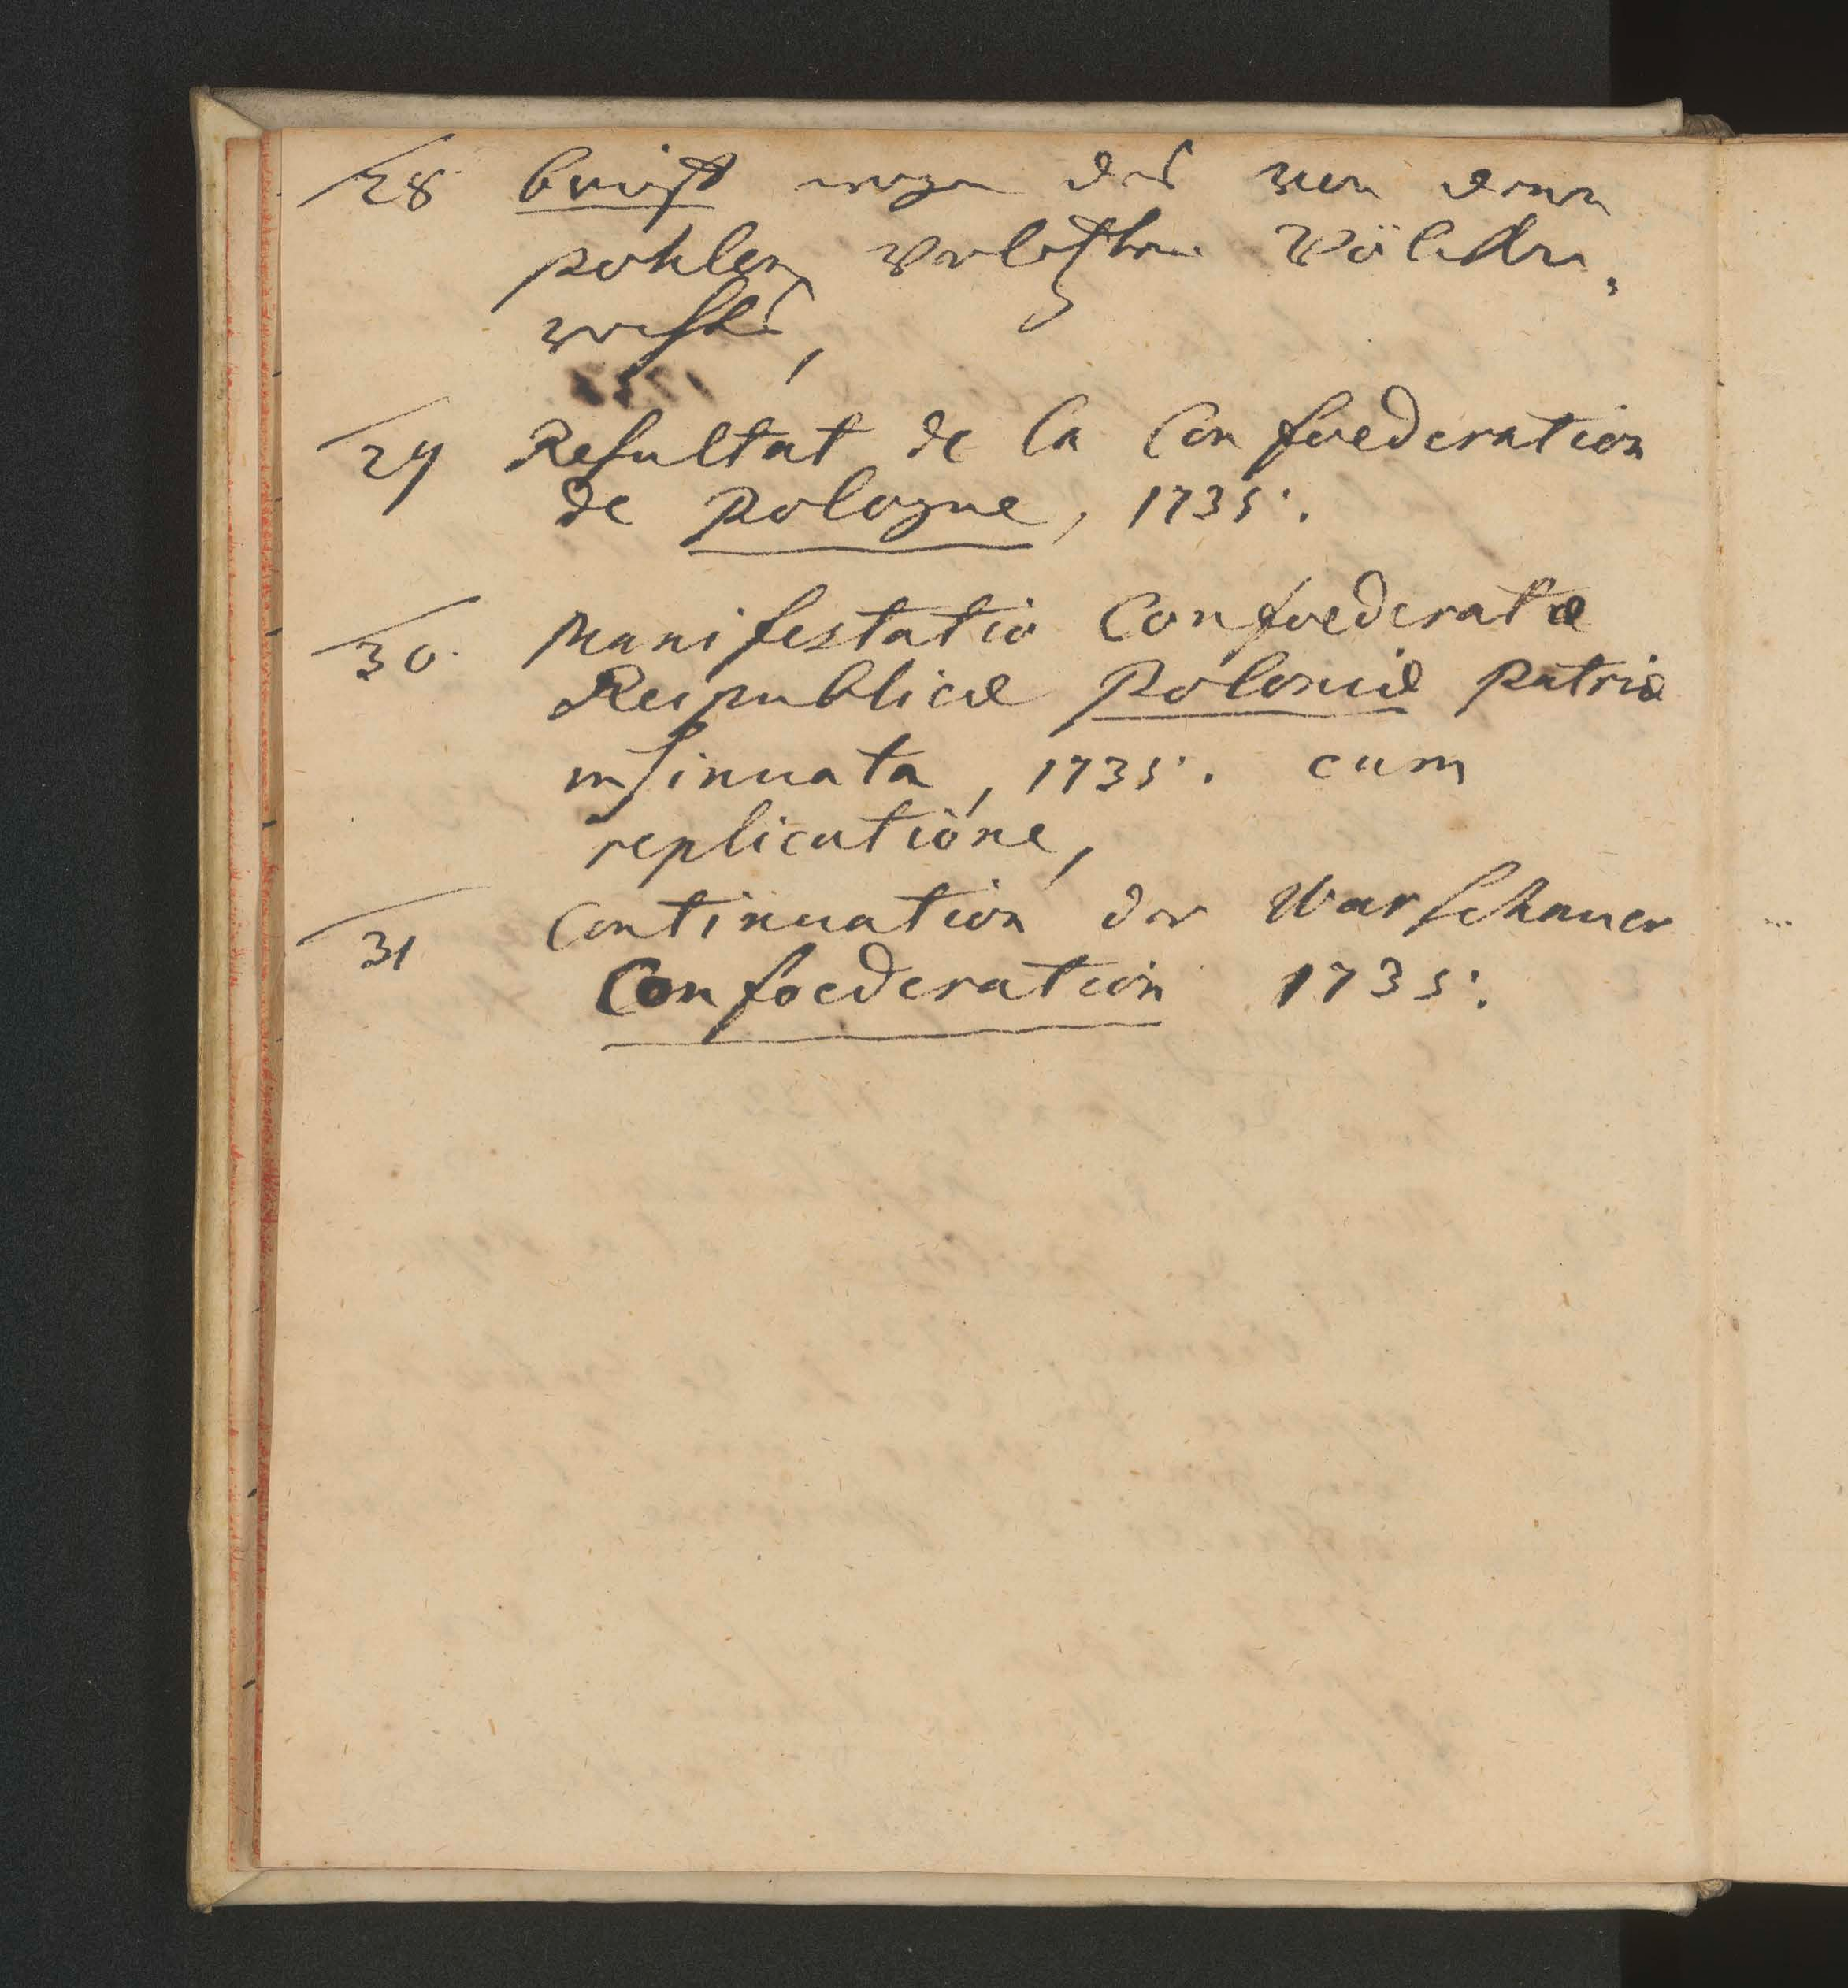 28 brieff wegen das von denen
pohlen verletzten Völcker,
rechts,
29 Resultat de la Confoederation
de Pologne, 1735.
30. Manifestatio Confoederatæ
Reipublicæ Poloniæ patriæ
insinuata, 1735. cum
replicatione,
31 Continuation der Warschauer
Confoederation 1735.